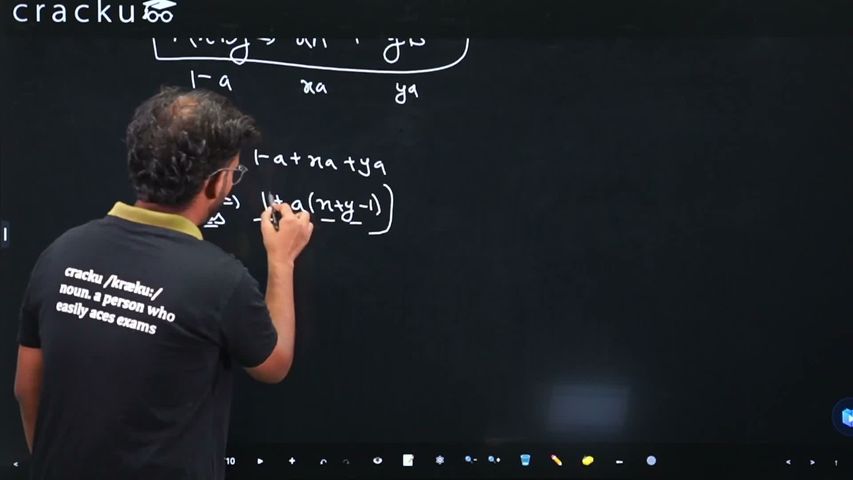 cracku
1-a xa ya
1-a+xa+ya
=) 1+a(x+y-1)
cracku /kræku:/
noun. a person who
easily aces exams
10